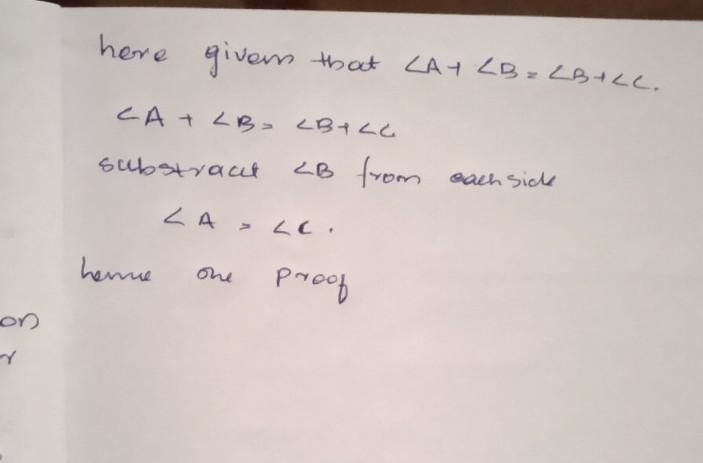 here given that ∠A+ ∠B = ∠B+∠C.
∠A + ∠B = ∠B+∠C
substract ∠B from each side
∠A = ∠C.
hence one proof
on
r